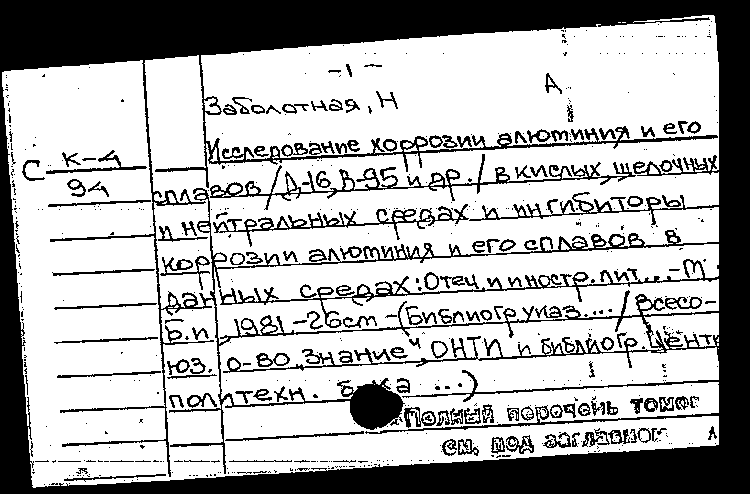 -1-
Заболотная, Н
А
Исследование коррозии алюминия и его
С К-4
94
сплавов /Д-16, В-95 и др./ в кислых, щелочных
и нейтральных средах и ингибиторы
коррозии алюминия и его сплавов в
данных средах: Отеч. и иностр. лит... -М
Б.и., 1981. -26см -(Библиогр. указ..../ Всесо-
юз. о-во "Знание", ОНТИ и библиогр. Центр
политехн. б-ка ...)
Полный перечень томов
см. под заглавном А